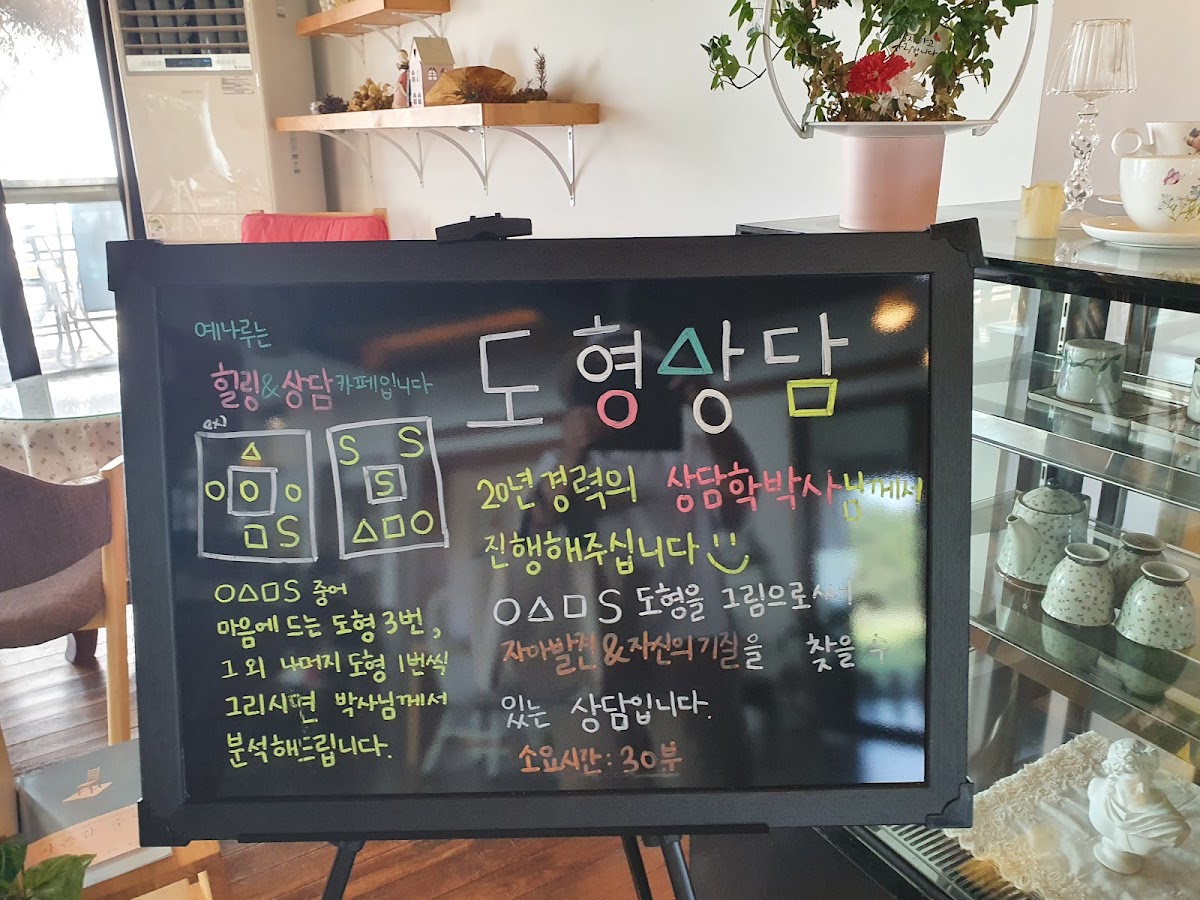 예나루는
힐링&상담카페입니다
예시)
△
○ ○ ○
□ S
S S
S
△□○
○△□S 중에
마음에 드는 도형 3번,
그 외 나머지 도형 1번씩
그리시면 박사님께서
분석해드립니다.
도형상담
20년 경력의 상담학박사님께서
진행해주십니다
○△□S 도형을 그림으로써
자아발견&자신의기질을 찾을 수
있는 상담입니다.
소요시간: 30분